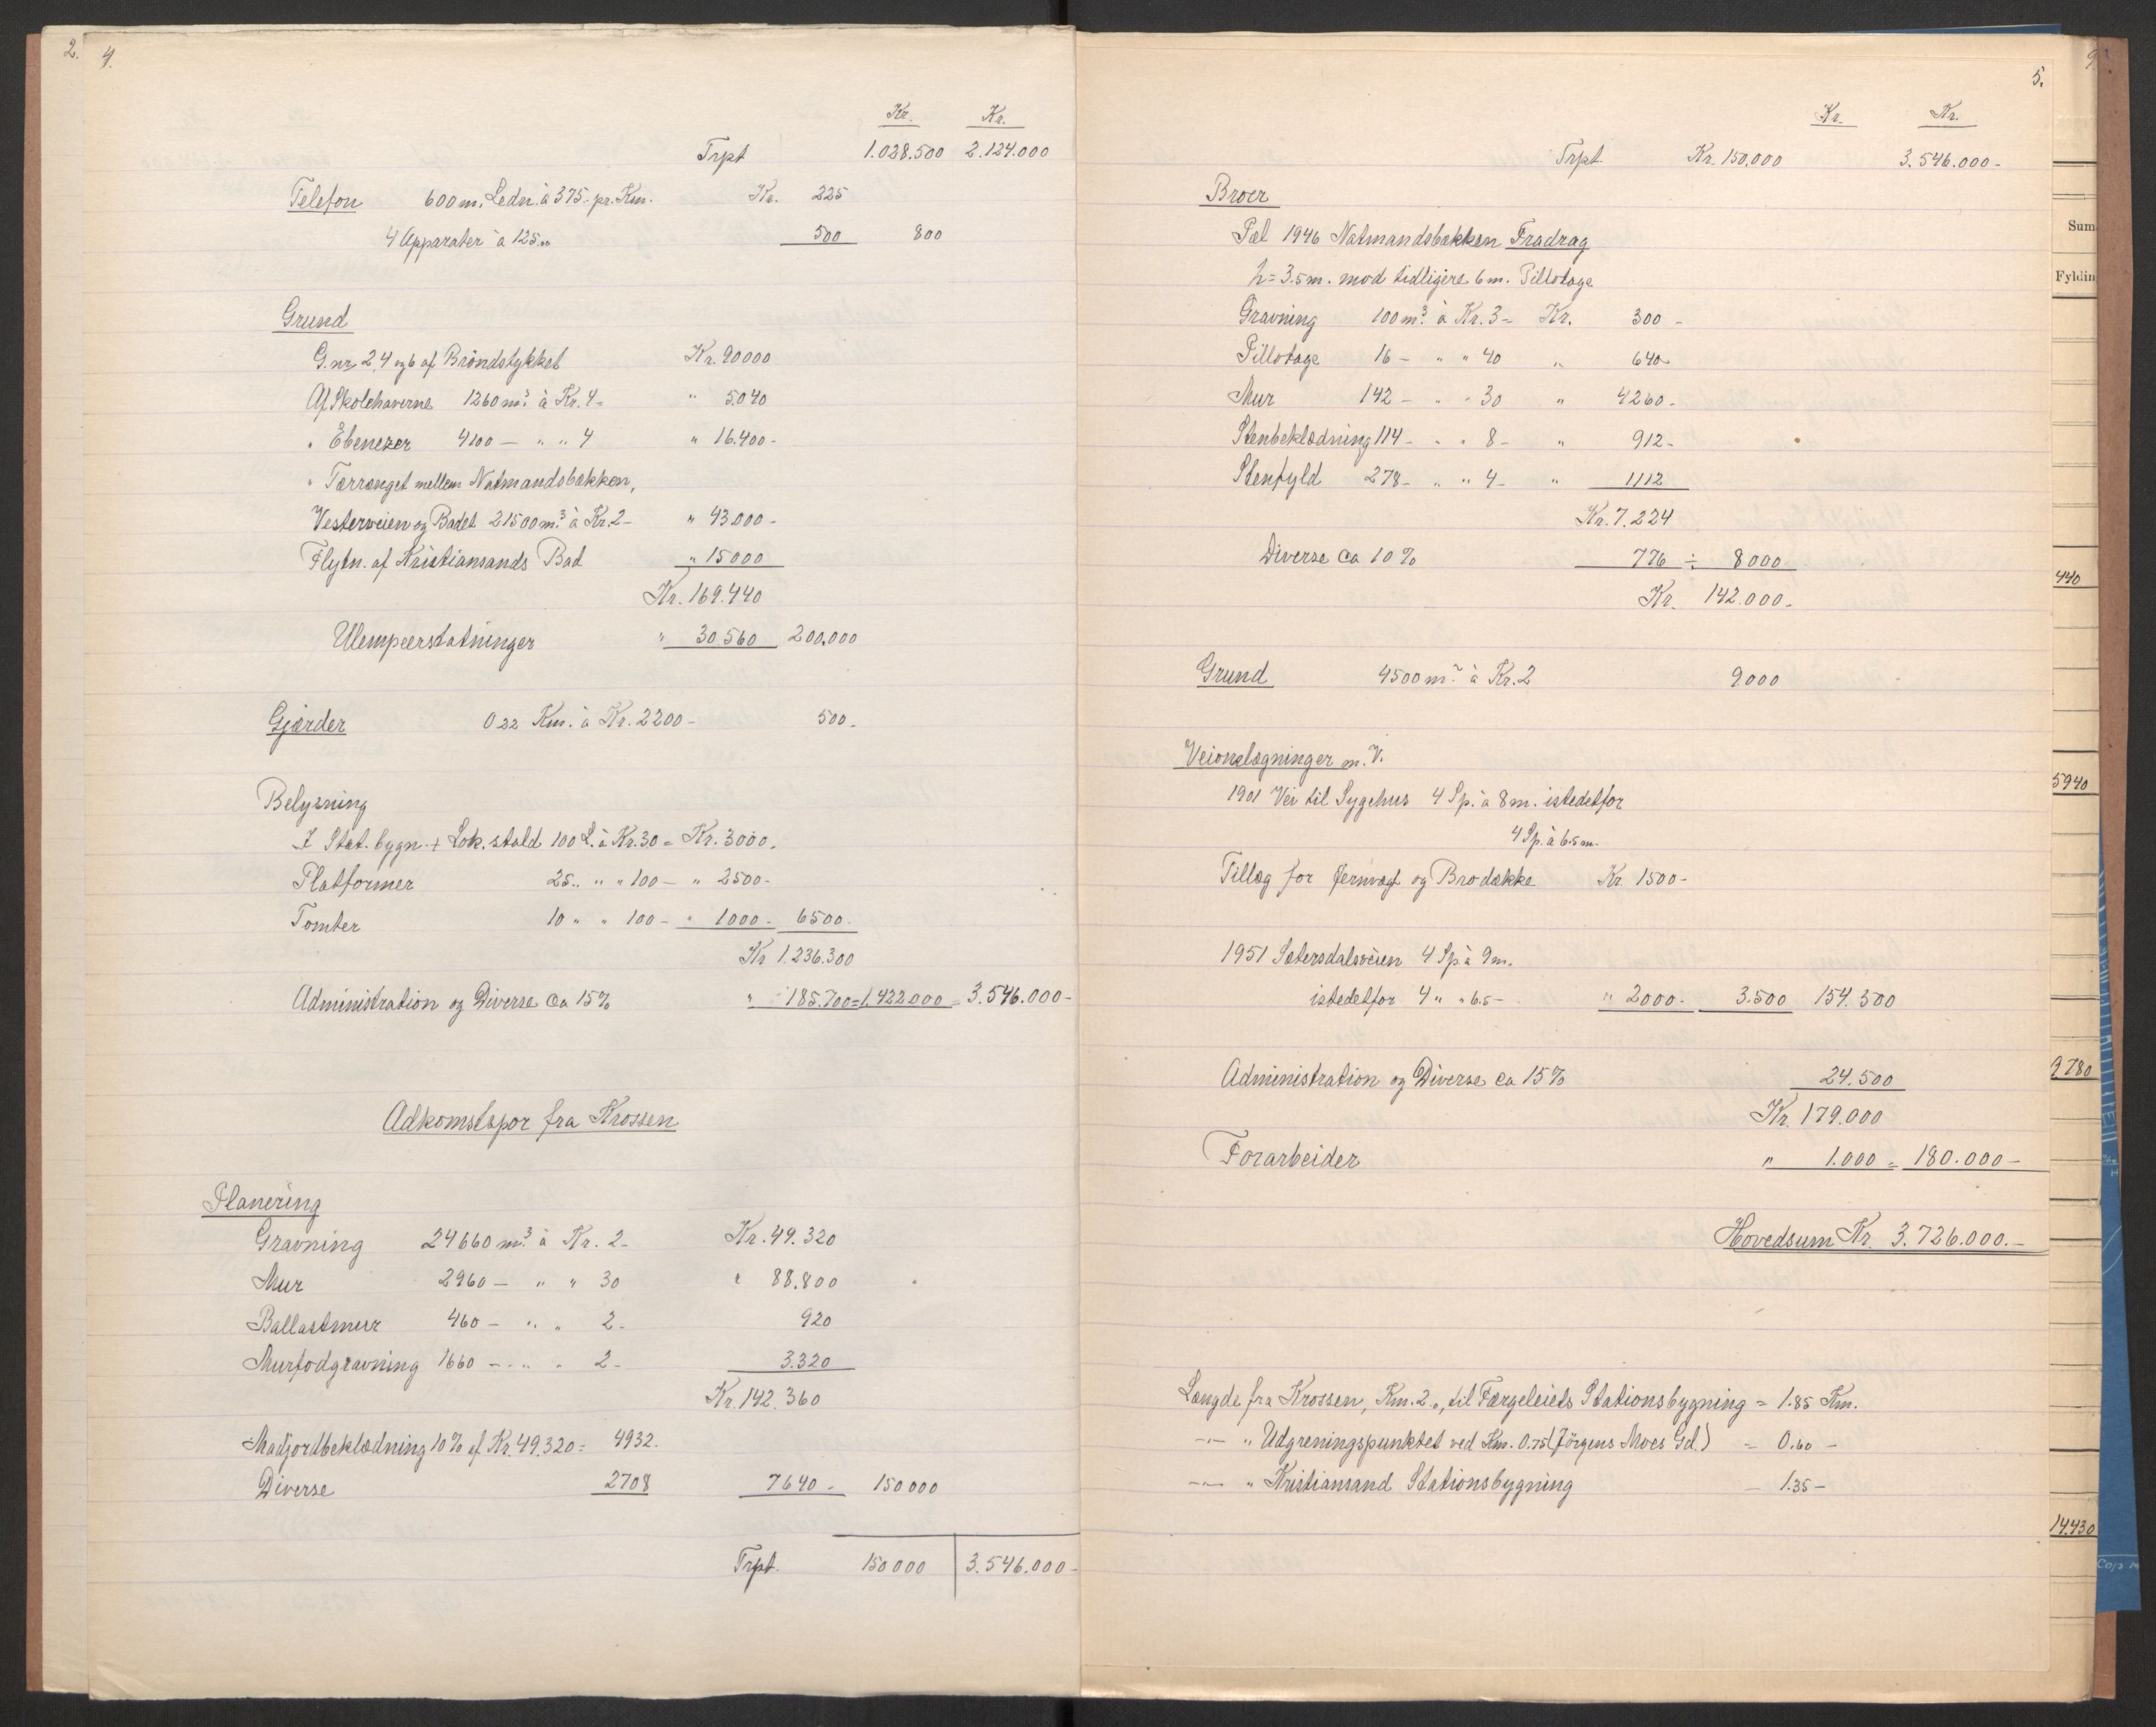 2.
4.
Kr. Kr.
Trpt 1.028.500 2.124.000
Telefon 600 m. Ledn. à 375.- pr. Km. Kr. 225
4 Apparater à 125.00 500 800
Grund
G. nr 2, 4 og 6 af Bröndstykket Kr. 90000
Af Skolehaverne 1260 m² à Kr. 4- " 5.040
" Ebenezer 4100 — " " 4 " 16.400-
" Tærrænget mellem Natmandsbækken,
Vesterveien og Badet 21500 m² à Kr. 2- " 43.000-
Flytn. af Kristiansands Bad " 15000
Kr. 169.440
Ulempeerstatninger " 30.560 200.000
Gjærder 0.22 Km. à Kr. 2200- 500-
Belysning
I Stat. bygn. + Lok. stald 100 L. à Kr. 30 = Kr. 3000.
Platformer 25 " " " 100 — " 2500-
Tomter 10 " " 100 — " 1000 - 6500.
Kr 1.236.300
Administration og Diverse ca 15% " 185.700 = 1.422.000 = 3.546.000-
Adkomstspor fra Krossen
Planering
Gravning 24660 m³ à Kr. 2- Kr. 49.320
Mur 2960 — " " 30 " 88.800
Ballastmur 460 — " " 2- 920
Murfodgravning 1660 — " " 2- 3.320
Kr. 142.360
Madjordbeklædning 10% af Kr. 49.320 = 4932.
Diverse 2708 7640 - 150000
Trpt. 150000 3.546.000-
5.
Kr. Kr.
Trpt. Kr. 150,000 3.546.000-
Broer
Pæl 1946 Natmandsbækken Fradrag
h = 3.5 m. mod tidligere 6 m. Pillotage
Gravning 100 m³ à Kr. 3 = Kr. 300 -
Pillotage 16 — " " 40 " 640-
Mur 142 — " " 30 " 4260-
Stenbeklædning 114 — " " 8- " 912-
Stenfyld 278 — " " 4- " 1112
Kr. 7.224
Diverse ca 10% 776 ÷ 8000
Kr. 142.000-
Grund 4500 m² à Kr. 2 9.000
Veiomlægninger m. V.
1901 Vei til Sygehus 4 Sp. à 8 m. istedetfor
4 Sp. à 6.5 m.
Tillæg for Jernvægt og Brodække Kr. 1500-
1951 Sætersdalsveien 4 Sp à 9 m.
istedetfor 4 " " 6.5 - " 2000- 3.500 154.500
Administration og Diverse ca 15% 24.500
Kr. 179.000
Forarbeider " 1.000 = 180.000-
Hovedsum Kr. 3.726.000.-
Længde fra Krossen, Km. 2.0, til Færgeleiets Stationsbygning = 1.85 Km.
—"— " Udgreningspunktet ved Km. 0.75 (Jörgens Moes Gd.) = 0.60 -
—"— " Kristiansand Stationsbygning — 1.35 -
9.
Sum
Fyldin
440
5940
9780
14.430